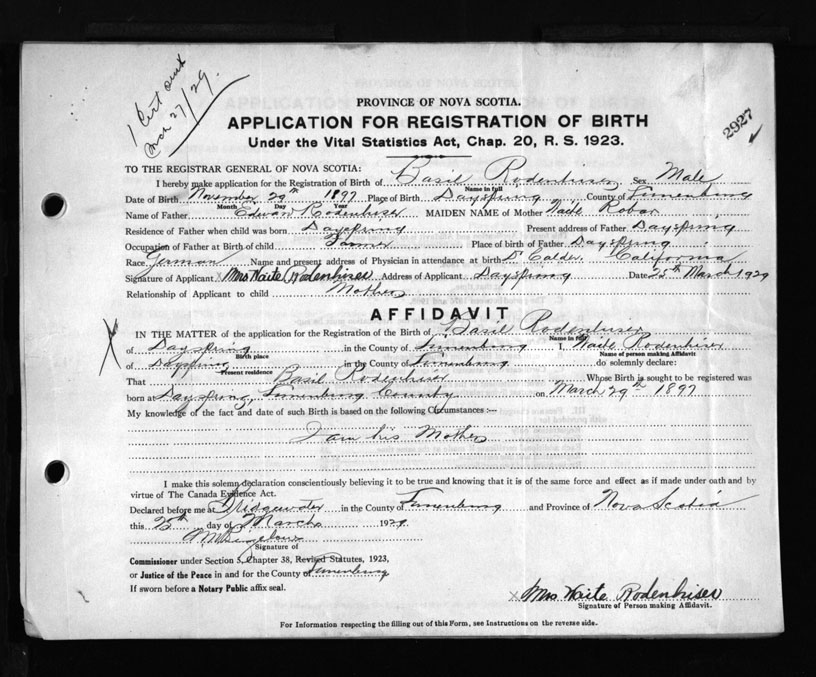 1 Cert sent
Mch 27/29.
2927
PROVINCE OF NOVA SCOTIA.
APPLICATION FOR REGISTRATION OF BIRTH
Under the Vital Statistics Act, Chap. 20, R. S. 1923.
TO THE REGISTRAR GENERAL OF NOVA SCOTIA:
I hereby make application for the Registration of Birth of Basil Rodenhiser Sex Male
Name in full
Date of Birth November 29th 1897 Place of Birth Dayspring County of Lunenburg
Month Day Year
Name of Father Edward Rodenhiser MAIDEN NAME of Mother Waite Robar
Residence of Father when child was born Dayspring Present address of Father Dayspring
Occupation of Father at Birth of child Farmer Place of birth of Father Dayspring
Race German Name and present address of Physician in attendance at birth Dr Calder. California
Signature of Applicant x Mrs Waite Rodenhiser Address of Applicant Dayspring Date 25th March 1929
Relationship of Applicant to child Mother
AFFIDAVIT
IN THE MATTER of the application for the Registration of the Birth of Basil Rodenhiser
Name in full
of Dayspring in the County of Lunenburg I, Waite Rodenhiser
Birth place Name of person making Affidavit
of Dayspring in the County of Lunenburg do solemnly declare:
Present residence
That Basil Rodenhiser Whose Birth is sought to be registered was
born at Dayspring, Lunenburg County on March 29th 1897
My knowledge of the fact and date of such Birth is based on the following Circumstances :—
I am his Mother
I make this solemn declaration conscientiously believing it to be true and knowing that it is of the same force and effect as if made under oath and by
virtue of The Canada Evidence Act.
Declared before me at Bridgewater in the County of Lunenburg and Province of Nova Scotia
this 25th day of March 1929.
Signature of
Commissioner under Section 5, Chapter 38, Revised Statutes, 1923,
or Justice of the Peace in and for the County of Lunenburg
If sworn before a Notary Public affix seal.
x Mrs Waite Rodenhiser
Signature of Person making Affidavit.
For Information respecting the filling out of this Form, see Instructions on the reverse side.